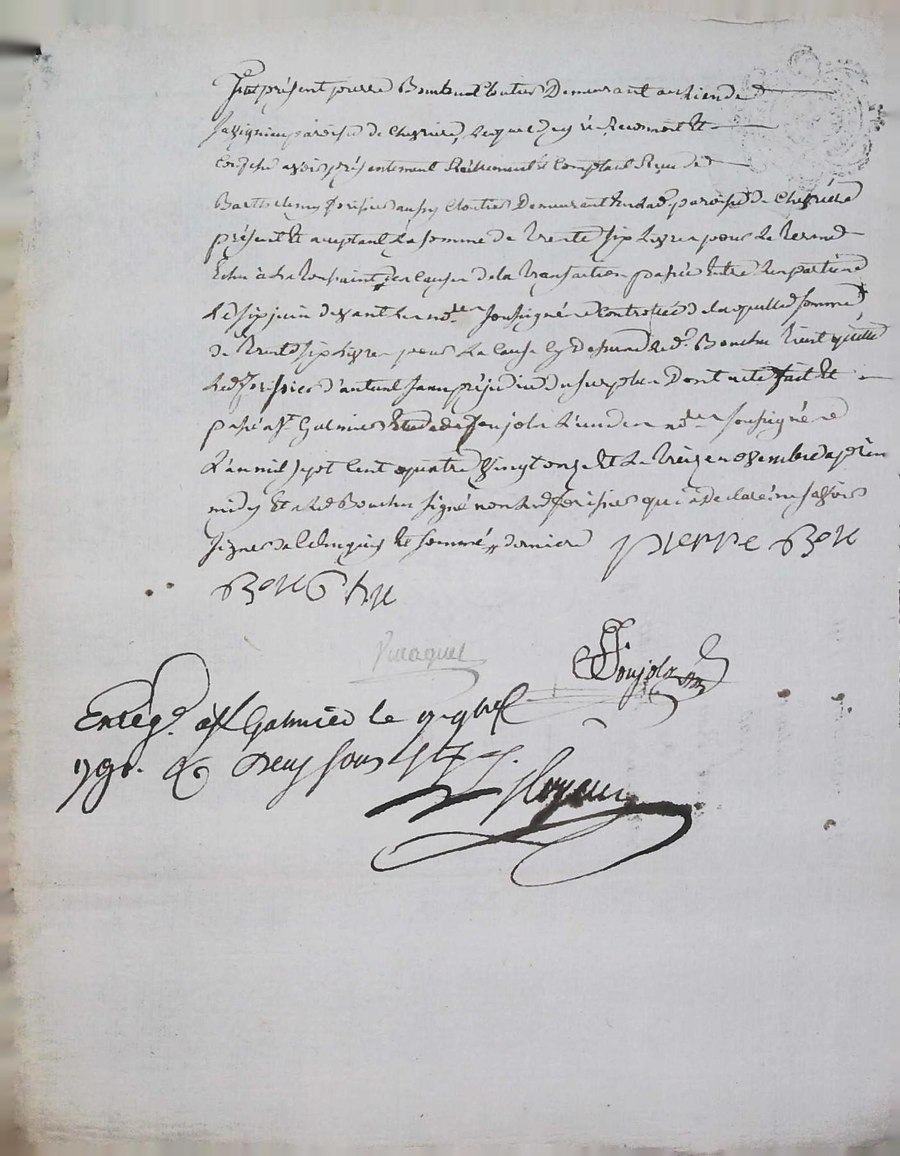 Fut présent pierre Bouchu Cloutier Demeurant au lieu de
paroisse de Chevriere, Lequel de gré reconnoit et
Confesse avoir présentement Réellement et Comptant Reçu de
Barthelemy forissier aussy Cloutier Demeurant aud. paroisse de Chevriere
présent et acceptant La somme de trente six Livres pour Le terme
Echu à La toussaint, es causes de la transaction passée Entre Les parties
Le six juin devant Le no.re soussigné Controllée de laquelle somme
de trente six Livres pour La Cause cy dessus Led. Bouchu tient quitte
Led. forissier d'autant sans préjudice du surplus Dont acte fait et
passé a St. Galmier Etude de Soujols L'un des no.res soussignés
L'an mil sept cent quatre vingt onze et Le treize novembre après
midy Et a Led Bouchu signé non Led forissier qui a declaré ne savoir
signer de ce Enquis et sommé dernier pierre Bou
Bouchu
Soujols
Enreg. a St Galmier le 9bre
deux sous